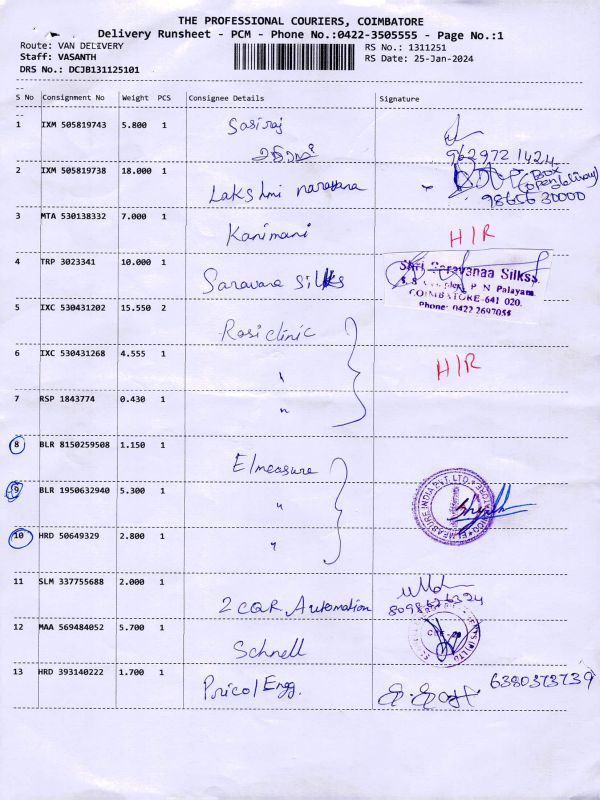 THE PROFESSIONAL COURIERS, COIMBATORE
Delivery Runsheet - PCM - Phone No.:0422-3505555 - Page No.:1
Route: VAN DELIVERY RS No.: 1311251
Staff: VASANTH RS Date: 25-Jan-2024
DRS No.: DCJB131125101
S No Consignment No Weight PCS Consignee Details Signature
1 IXM 505819743 5.800 1 Sasiraj
9629721424
2 IXM 505819738 18.000 1 Lakshmi narayana Box (open delivery)
9865630000
3 MTA 530138332 7.000 1 Kanimani H/R
4 TRP 3023341 10.000 1 Saravana Silks Shri Saravanaa Silkss.
P N Palayam
COIMBATORE-641 020.
Phone: 0422 2697055
5 IXC 530431202 15.550 2 Rosi clinic
6 IXC 530431268 4.555 1 " H/R
7 RSP 1843774 0.430 1 "
8 BLR 8150259508 1.150 1 Elmeasure
9 BLR 1950632940 5.300 1 " ELMEASURE INDIA PVT. LTD.
10 HRD 50649329 2.800 1 "
11 SLM 337755688 2.000 1 2 CQR Automation
12 MAA 569484052 5.700 1 Schnell
13 HRD 393140222 1.700 1 Pricol Engg. 6380373739